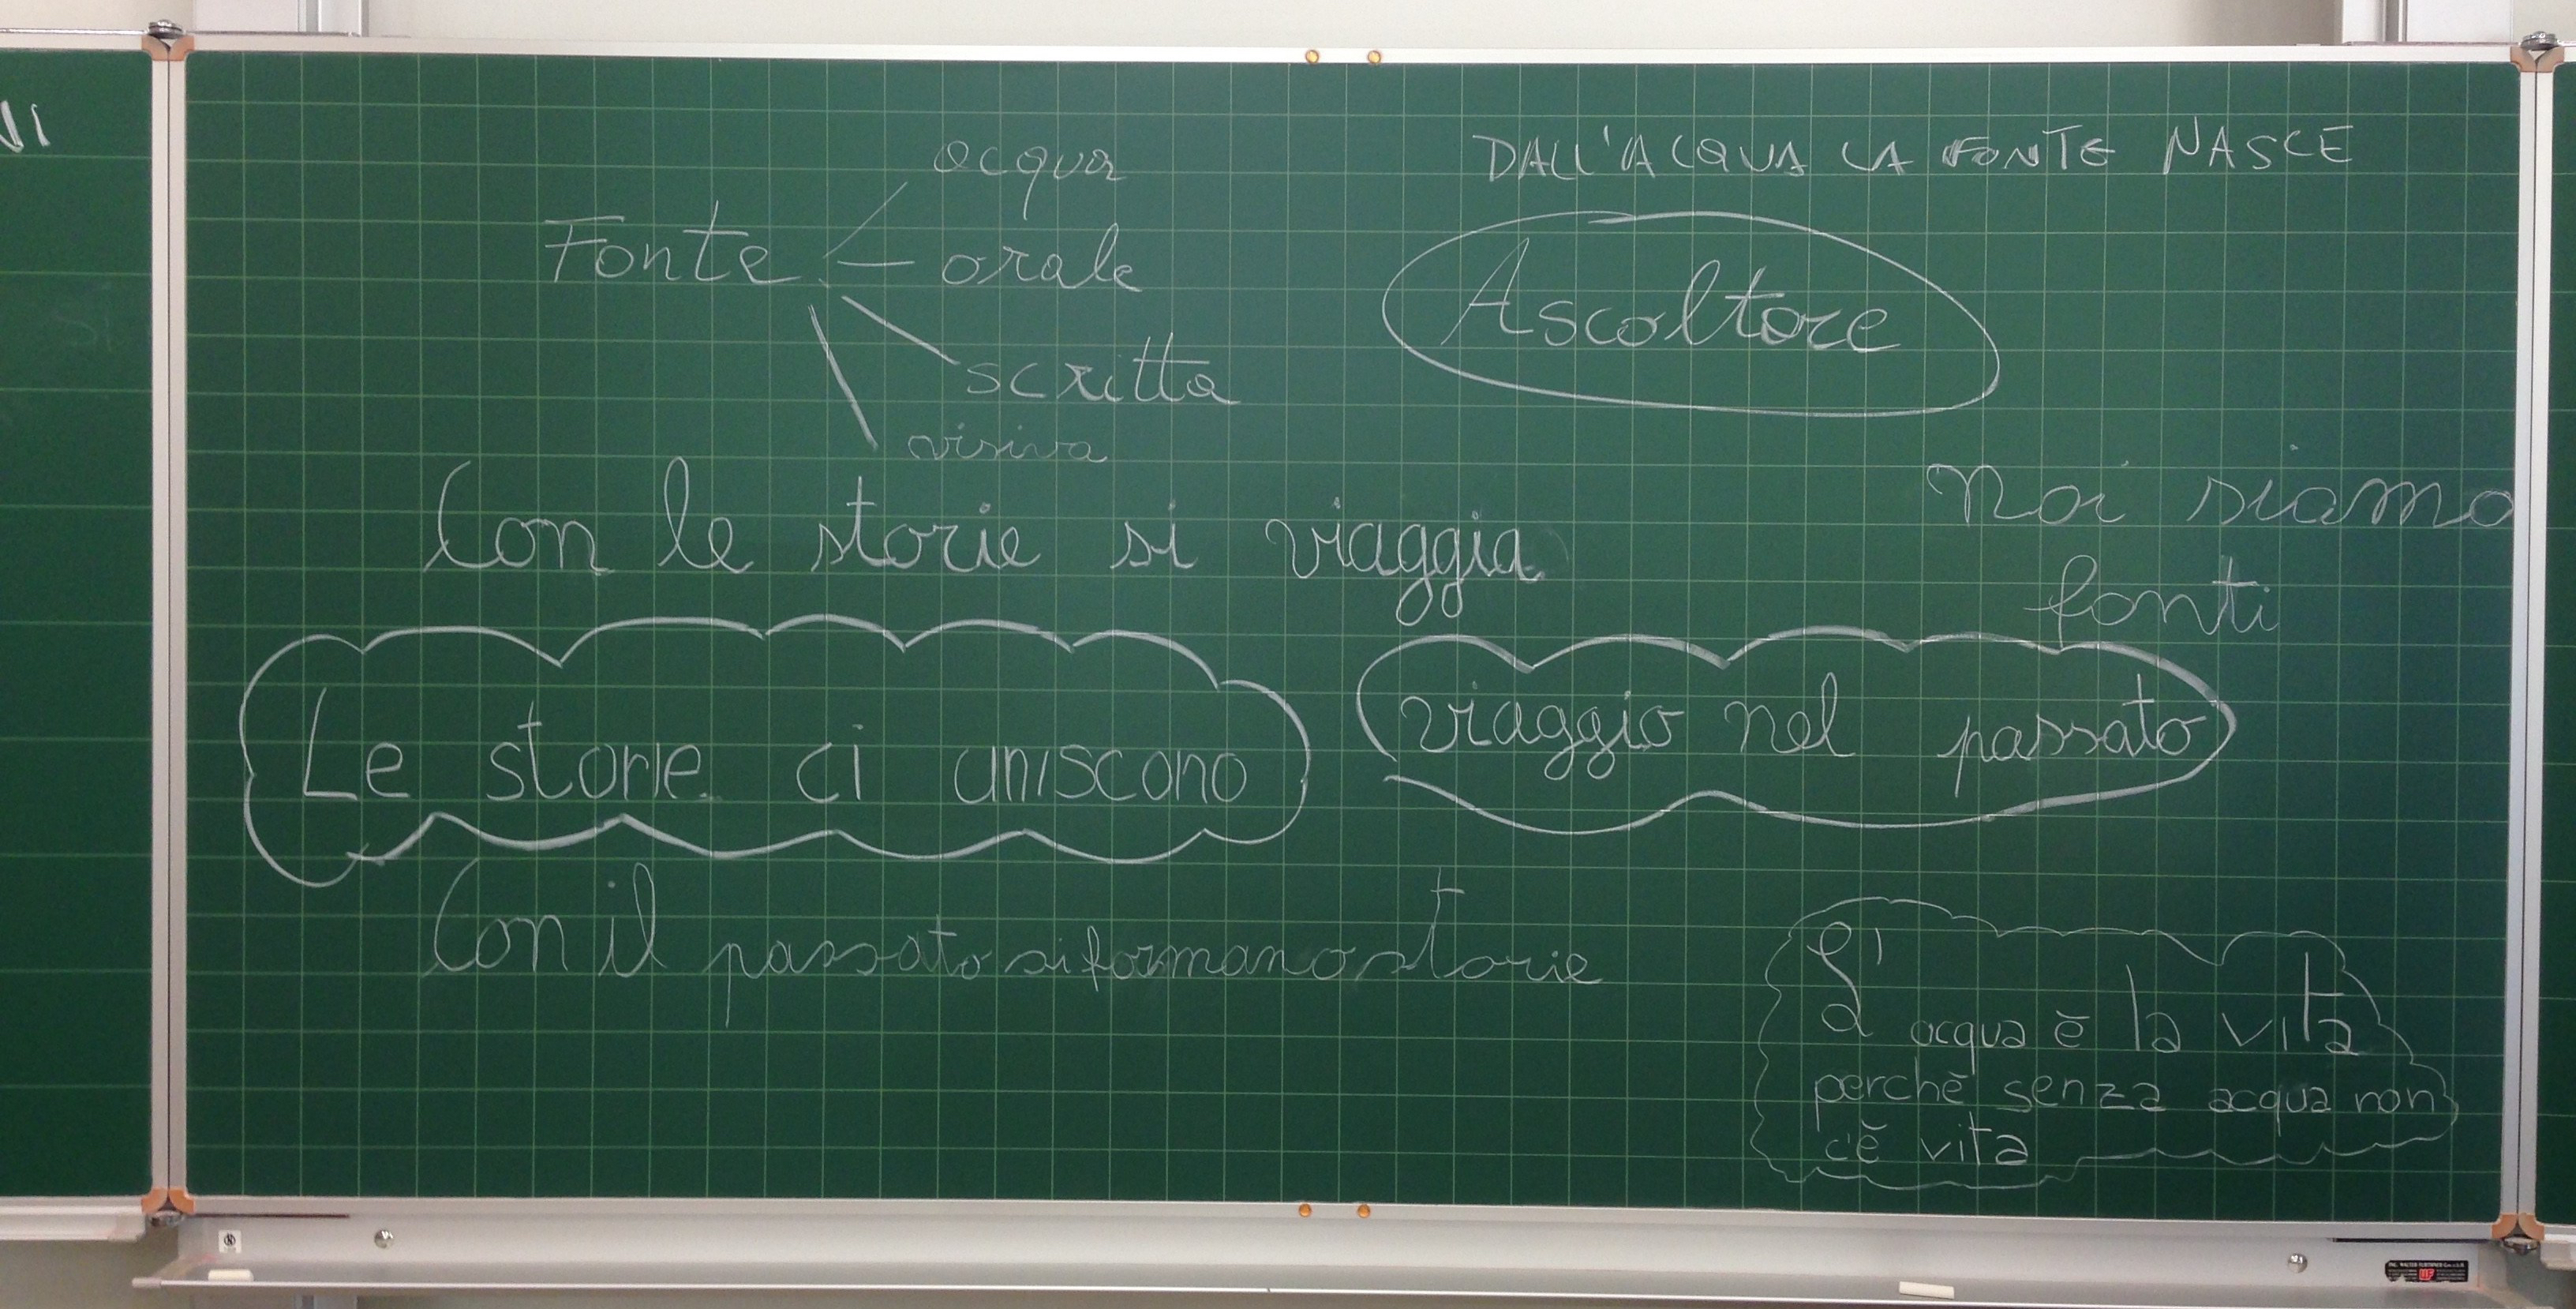 VI
acqua
DALL'ACQUA LA FONTE NASCE
Fonte
orale
Ascoltare
scritta
visiva
Con le storie si viaggia
Noi siamo
fonti
Le storie ci uniscono
viaggio nel passato
Con il passato si formano storie
L'
acqua è la vita
perchè senza acqua non
c'è vita